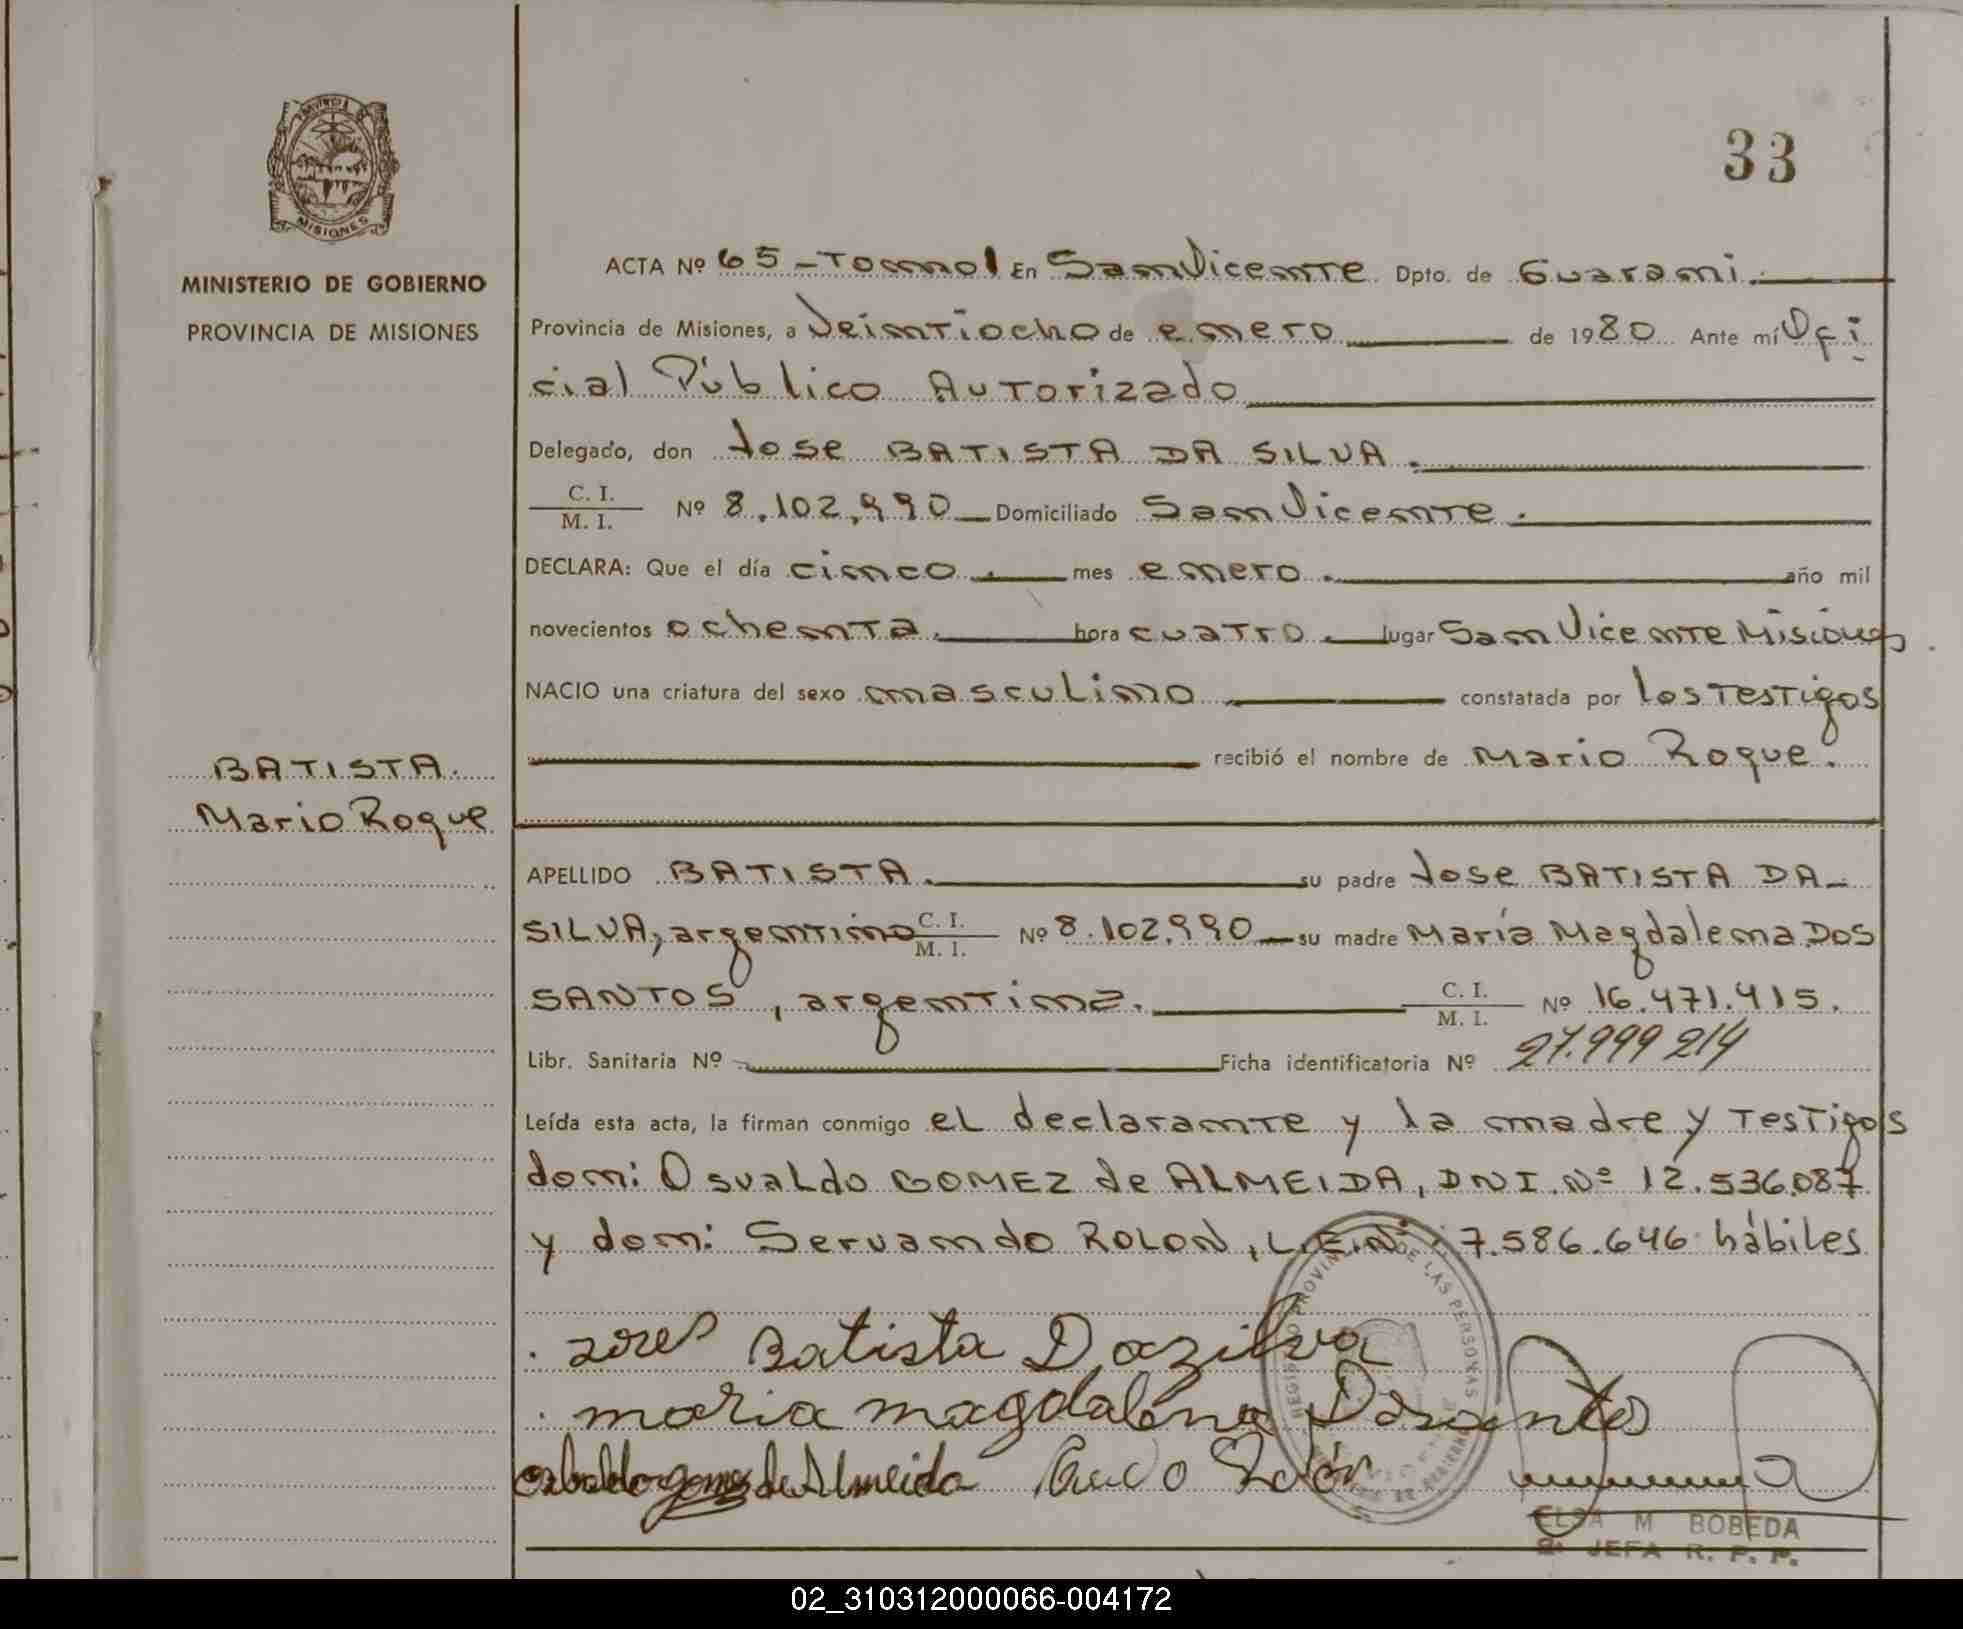 33
PROVINCIA DE
MISIONES
MINISTERIO DE GOBIERNO
PROVINCIA DE MISIONES
BATISTA.
Mario Roque
ACTA Nº 65 - Tomo I En San Vicente Dpto. de Guarani.
Provincia de Misiones, a Veintiocho de enero de 1980 Ante mí Ofi
cial Público Autorizado
Delegado, don Jose BATISTA DA SILVA.
C. I. / M. I. Nº 8.102.990 Domiciliado San Vicente.
DECLARA: Que el día cinco. mes enero. año mil
novecientos ochenta. hora cuatro. lugar San Vicente Misiones
NACIO una criatura del sexo masculino constatada por los Testigos
recibió el nombre de Mario Roque.
APELLIDO BATISTA. su padre Jose BATISTA DA
SILVA, argentino C. I. / M. I. Nº 8.102.990 su madre María Magdalena DOS
SANTOS, argentina. C. I. / M. I. Nº 16.471.415.
Libr. Sanitaria Nº Ficha identificatoria Nº 27.999 214
Leída esta acta, la firman conmigo el declarante y la madre y Testigos
don: Osvaldo GOMEZ de ALMEIDA, DNI. Nº 12.536.087
y don: Servando ROLON, L.E.Nº 7.586.646 hábiles
Batista Dazilva
maria magdalena Dosantos
Osbaldo gomes de Almeida Rolón
REGISTRO PROVINCIAL DE LAS PERSONAS
ELSA M BOBEDA
JEFA R. P. P.
02_310312000066-004172